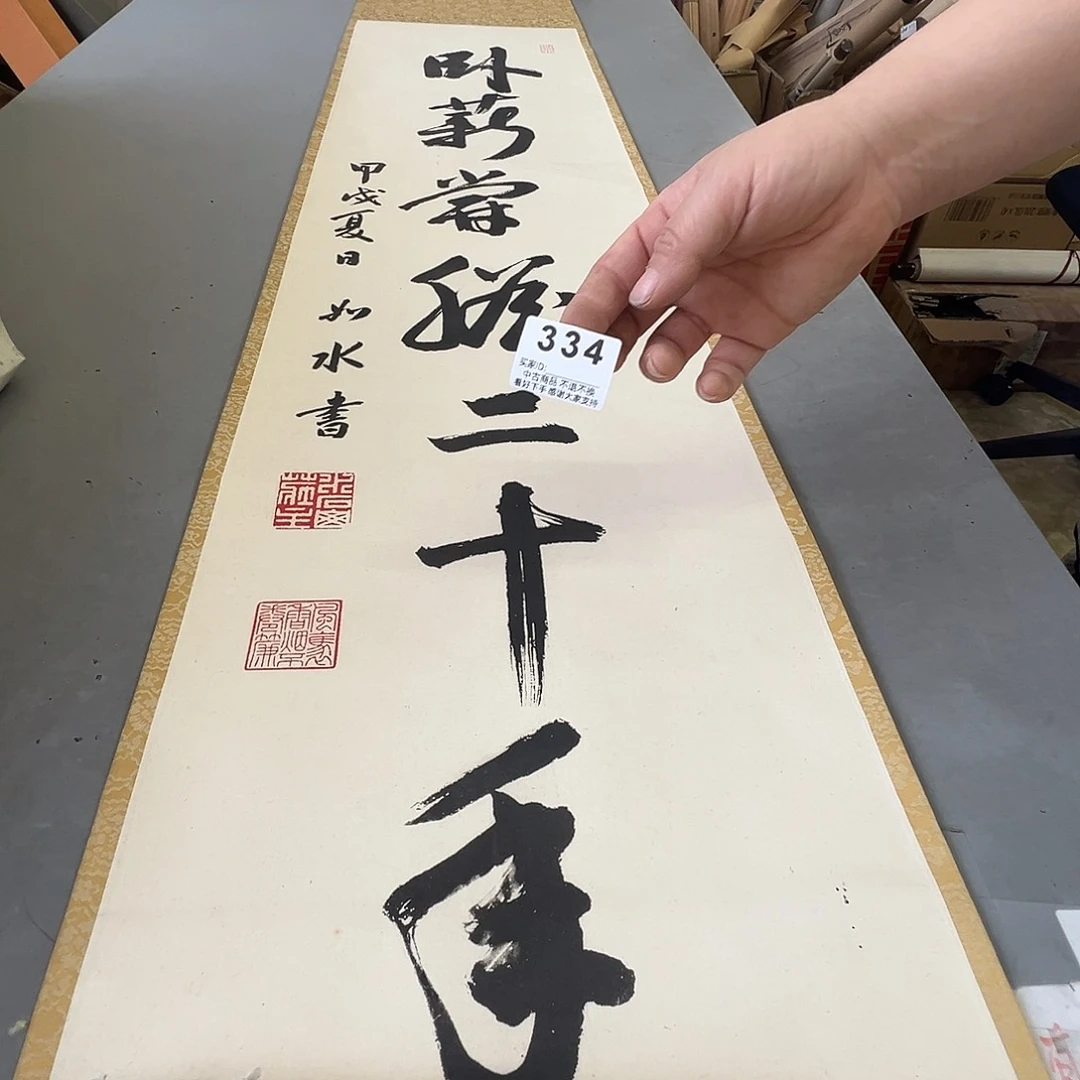 臥薪嘗膽二十年
甲戌夏日 如水書
334
买家ID:
中古商品 不退不换
看好下手 感谢大家支持